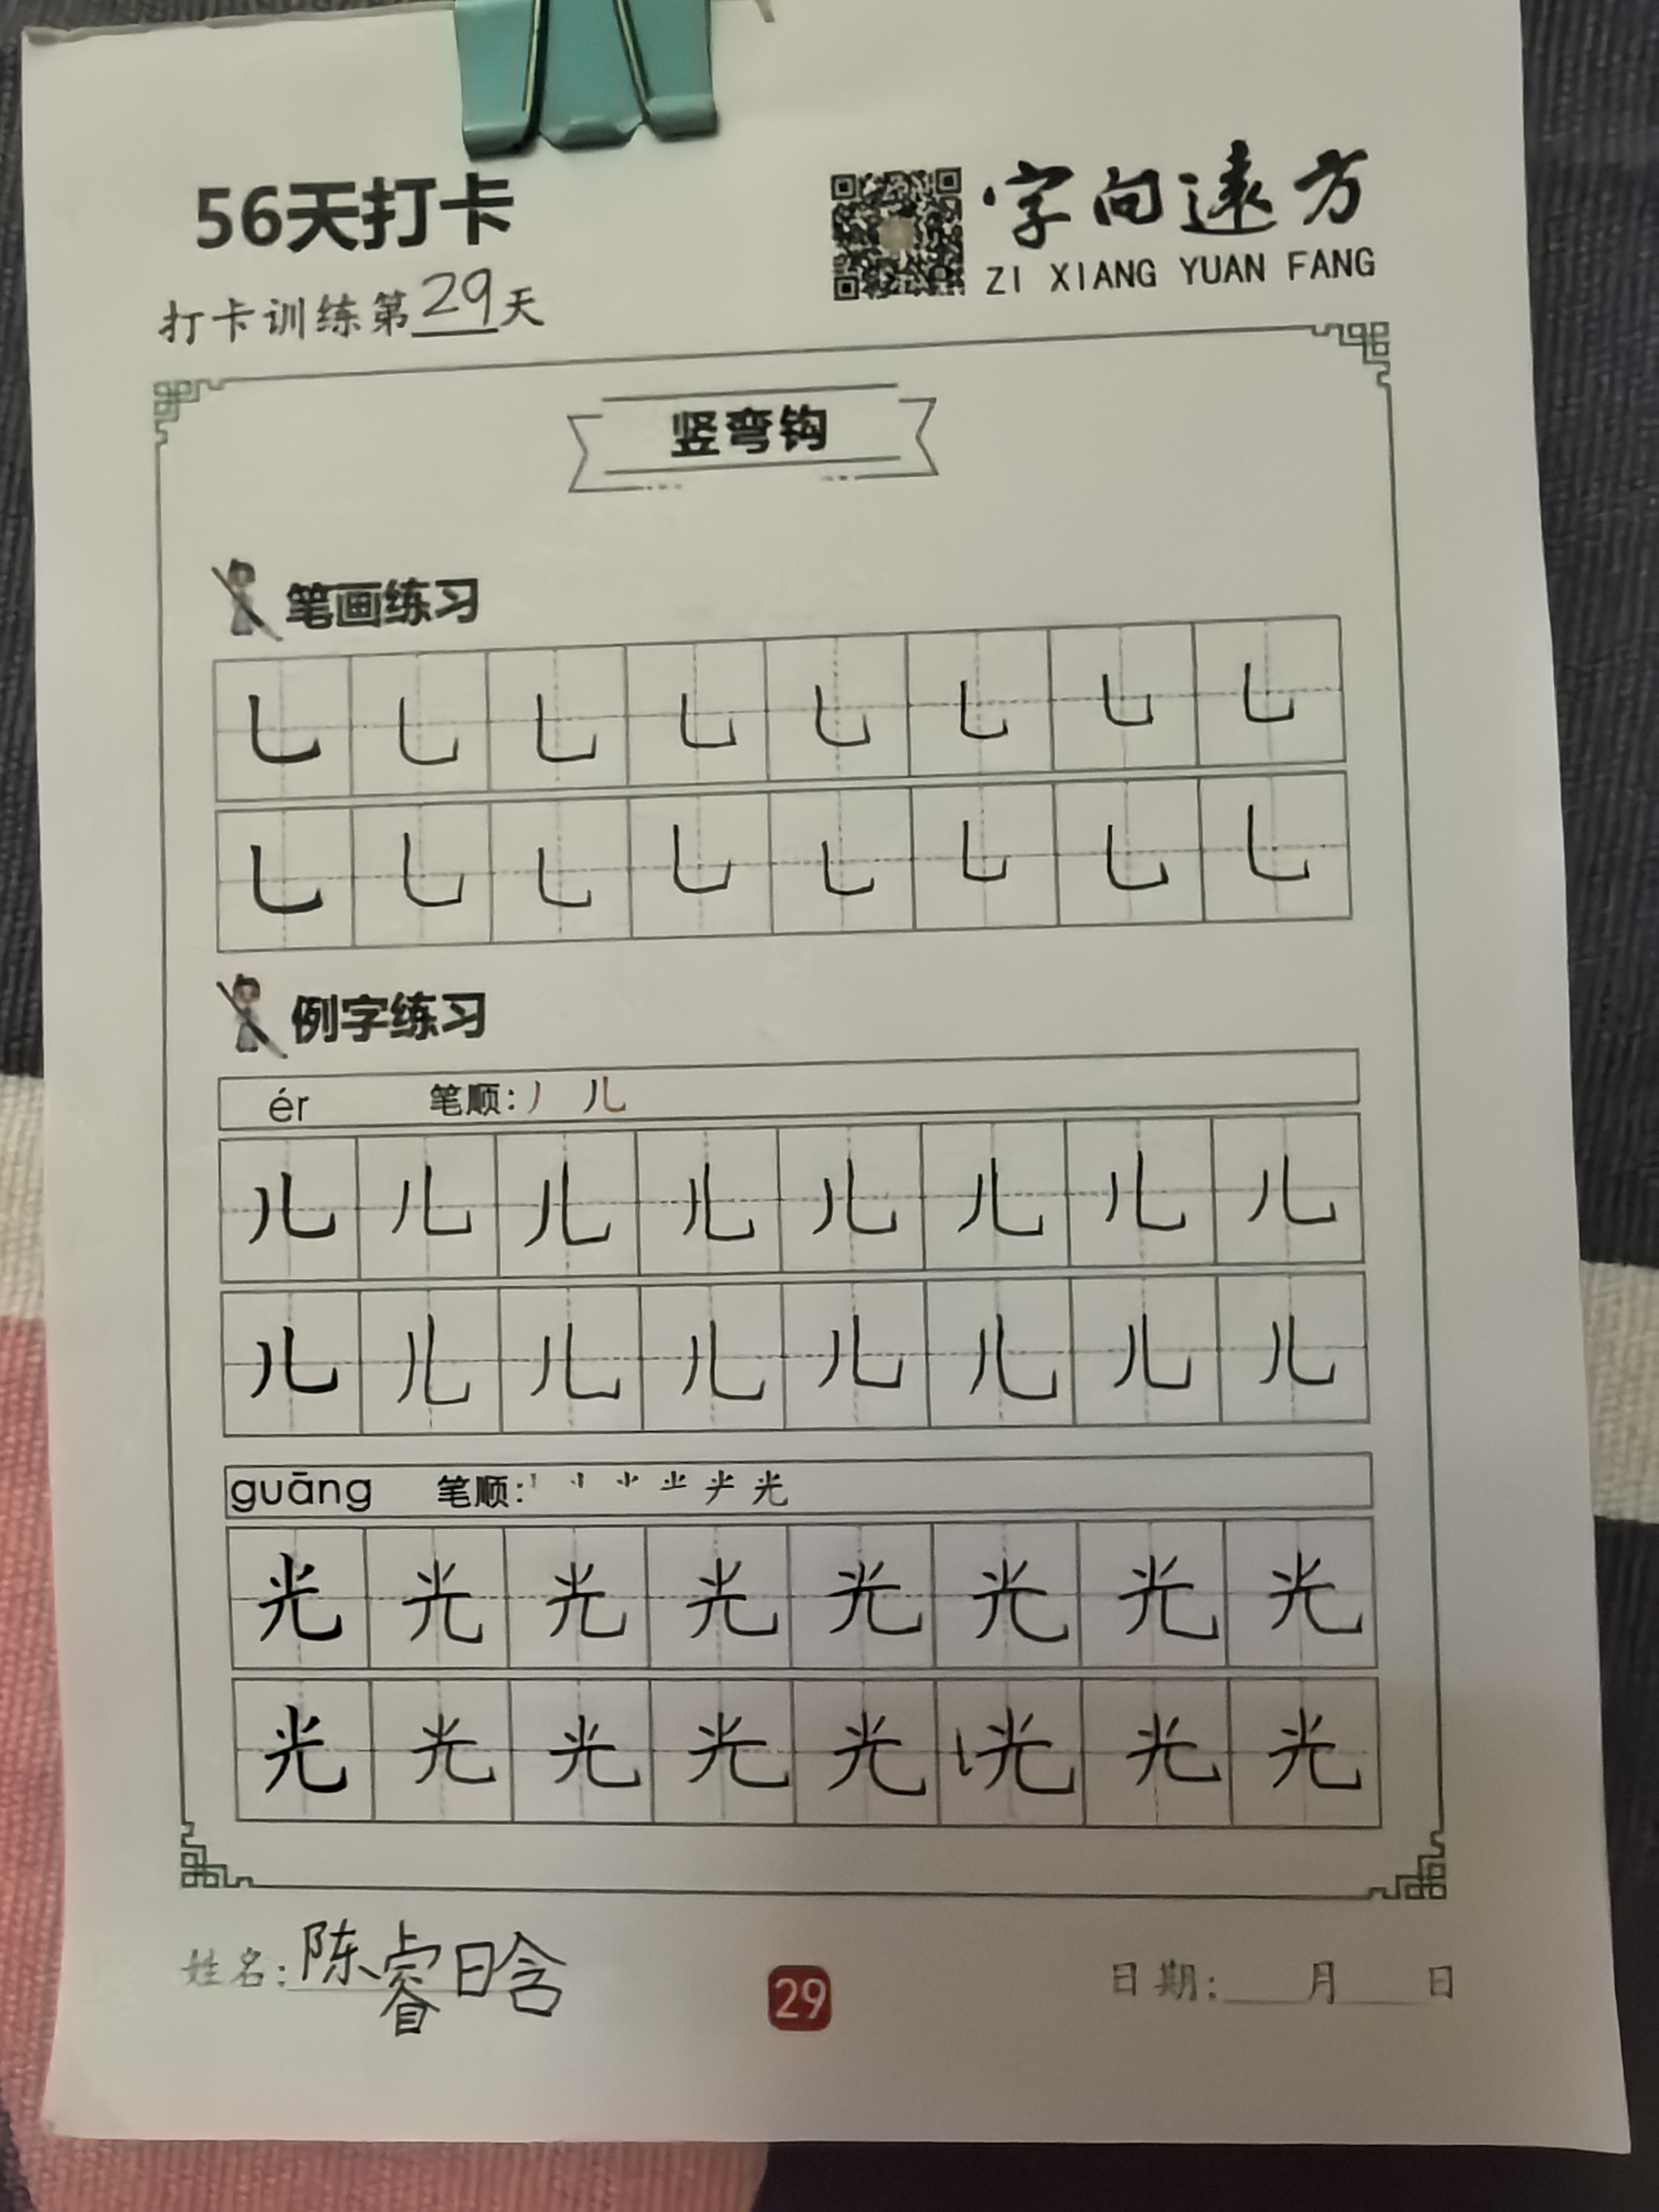 56天打卡
字向遠方
ZI XIANG YUAN FANG
打卡训练第29天
竖弯钩
笔画练习
乚 乚 乚 乚 乚 乚 乚 乚
乚 乚 乚 乚 乚 乚 乚 乚
例字练习
ér 笔顺: 丿 儿
儿 儿 儿 儿 儿 儿 儿 儿
儿 儿 儿 儿 儿 儿 儿 儿
guāng 笔顺: 光
光 光 光 光 光 光 光 光
光 光 光 光 光 光 光 光
姓名: 陈睿晗
29
日期: 月 日